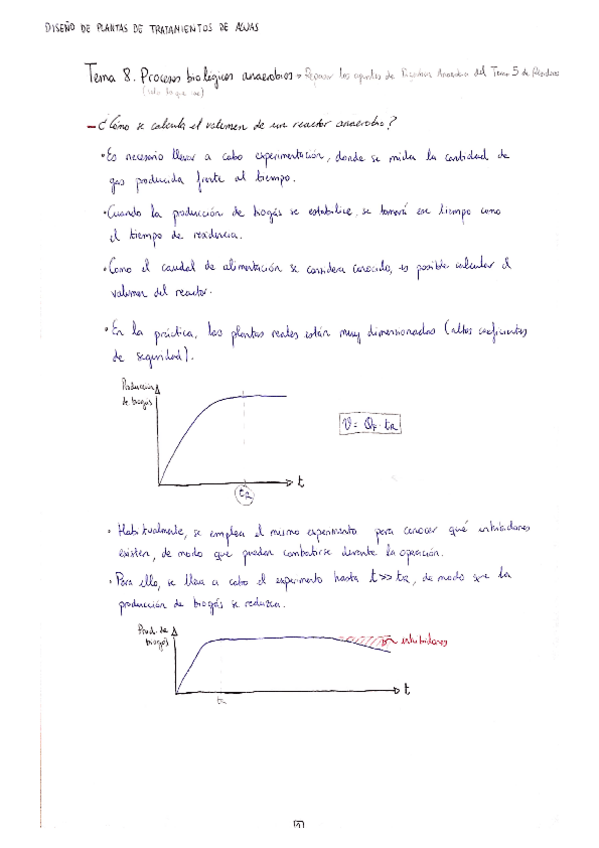 DISEÑO DE PLANTAS DE TRATAMIENTOS DE AGUAS
Tema 8. Procesos biológicos anaerobios. Repasar los apuntes de Digestión Anaerobia del Tema 5 de
(solo lo que)
- ¿Cómo se calcula el volumen de un reactor anaerobio?
• Es necesario llevar a cabo experimentación, donde se mida la cantidad de
gas producida frente al tiempo.
• Cuando la producción de biogás se estabilice, se tomará ese tiempo como
el tiempo de residencia.
• Como el caudal de alimentación se considera conocido, es posible calcular el
volumen del reactor.
• En la práctica, las plantas reales están muy dimensionadas (altos coeficientes
de seguridad).
Producción
de biogás
V = QF · tR
t
tR
• Habitualmente, se emplea el mismo experimento para conocer qué inhibidores
existen, de modo que puedan combatirse durante la operación.
• Para ello, se lleva a cabo el experimento hasta t>>tR, de modo que la
producción de biogás se reduzca.
Prod. de
biogás
inhibidores
t
tR